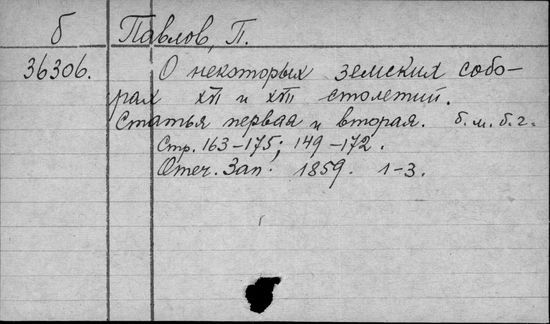 б Павлов, П.
36306. О некоторых земских собо-
рах XVI и XVII столетий.
Статья первая и вторая. б.м.б.г.
Стр. 163-175; 149-172.
Отеч. Зап. 1859. 1-3.